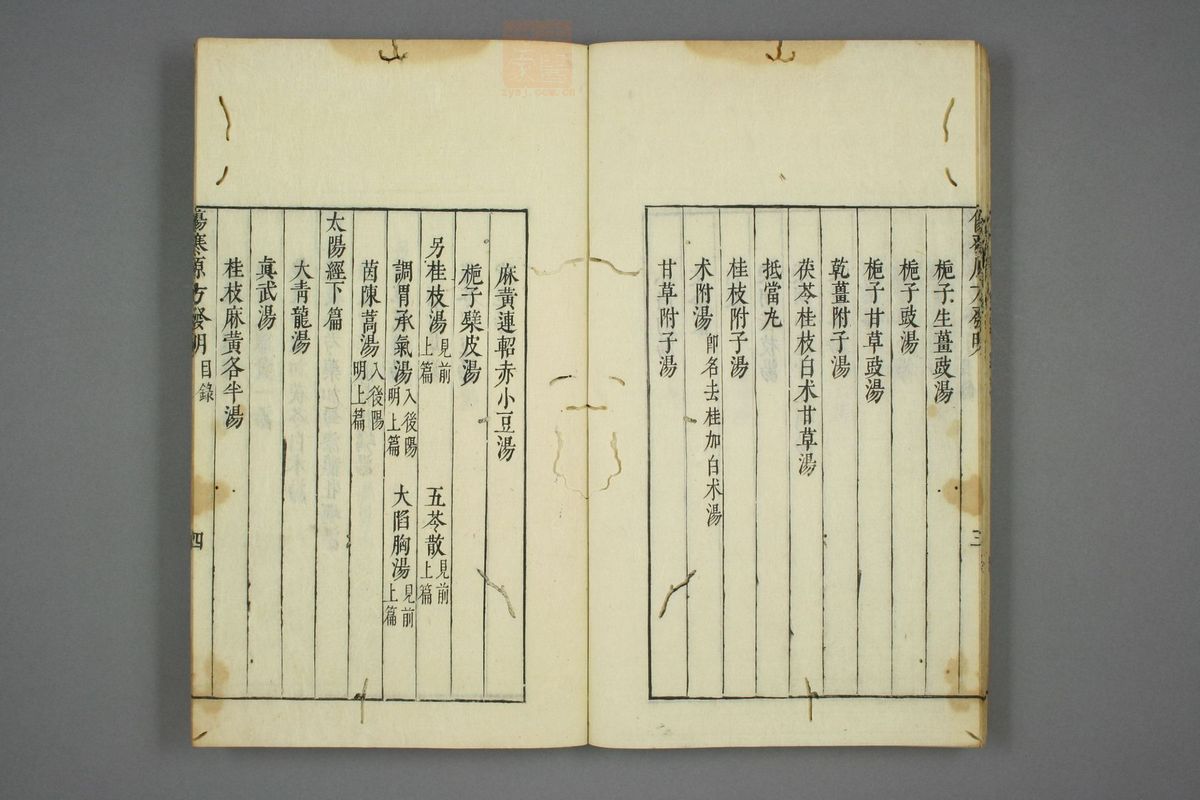 梔子生薑豉湯
梔子豉湯
梔子甘草豉湯
乾薑附子湯
茯苓桂枝白术甘草湯
抵當丸
桂枝附子湯
术附湯 卽名去桂加白术湯
甘草附子湯
三
麻黃連軺赤小豆湯
梔子蘗皮湯
另桂枝湯 見前上篇 五苓散 見前上篇
調胃承氣湯 入後陽明上篇 大陷胸湯 見前上篇
茵陳蒿湯 入後陽明上篇
太陽經下篇
大青龍湯
眞武湯
桂枝麻黃各半湯
傷寒原方發明 目錄 四